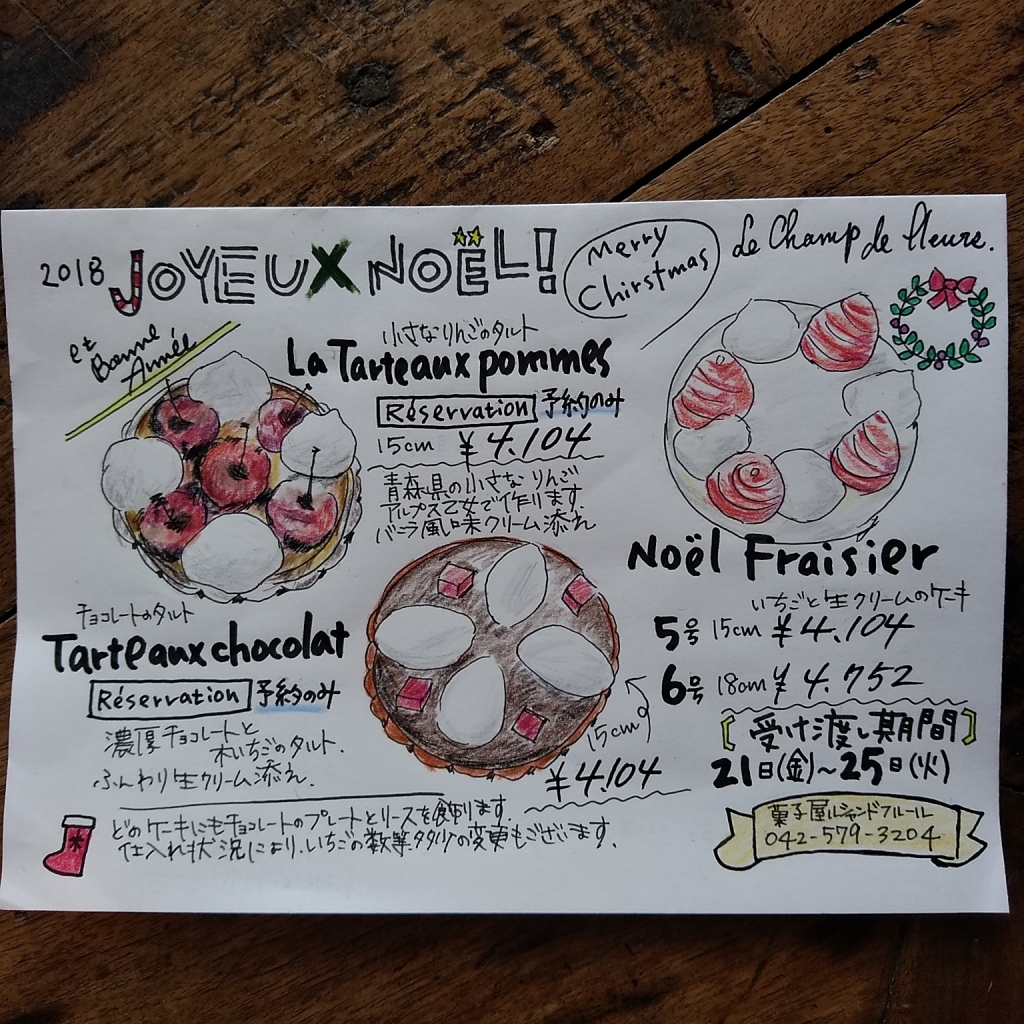 2018 JOYEUX NOËL!
Merry
Chirstmas
Le Champ de fleurs.
et
Bonne
Année
小さなりんごのタルト
La Tarteaux pommes
Réservation 予約のみ
15cm ¥4.104
青森県の小さなりんご
アルプス乙女で作ります.
バニラ風味クリーム添え
Noël Fraisier
いちごと生クリームのケーキ
5号 15cm ¥4.104
6号 18cm ¥4.752
チョコレートのタルト
Tarteaux chocolat
Réservation 予約のみ
濃厚チョコレートと
木いちごのタルト.
ふんわり生クリーム添え.
15cm
¥4.104
[受け渡し期間]
21日(金)~25日(火)
どのケーキにもチョコレートのプレートとリースを飾ります.
仕入れ状況により、いちごの数等多少の変更もございます.
菓子屋ルシャンドフルール
042-579-3204